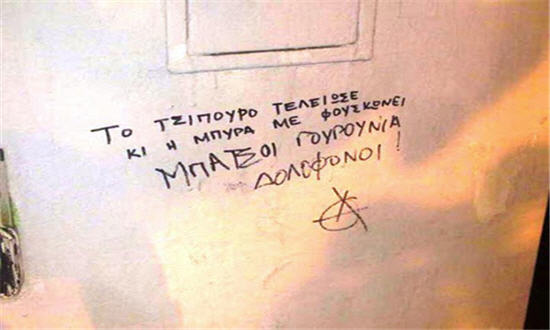 ΤΟ ΤΣΙΠΟΥΡΟ ΤΕΛΕΙΩΣΕ
ΚΙ Η ΜΠΥΡΑ ΜΕ ΦΟΥΣΚΩΝΕΙ
ΜΠΑΤΣΟΙ ΓΟΥΡΟΥΝΙΑ
ΔΟΛΟΦΟΝΟΙ!